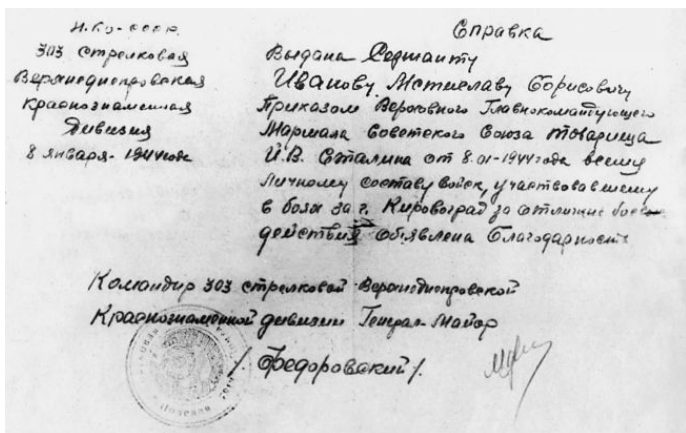 Н.К.О - СССР.
303 стрелковая
Верхнеднепровская
Краснознаменная
Дивизия
8 января - 1944 года
Справка
Выдана Сержанту
Иванову, Мстиславу Борисовичу
Приказом Верховного Главнокомандующего
Маршала Советского Союза товарища
И.В. Сталина от 8.01-1944 года всему
личному составу войск, участвовавшему
в боях за г. Кировоград за отличные
действия объявлена благодарность
Командир 303 стрелковой Верхнеднепровской
Краснознаменной дивизии Генерал-Майор
/. Федоровский /.